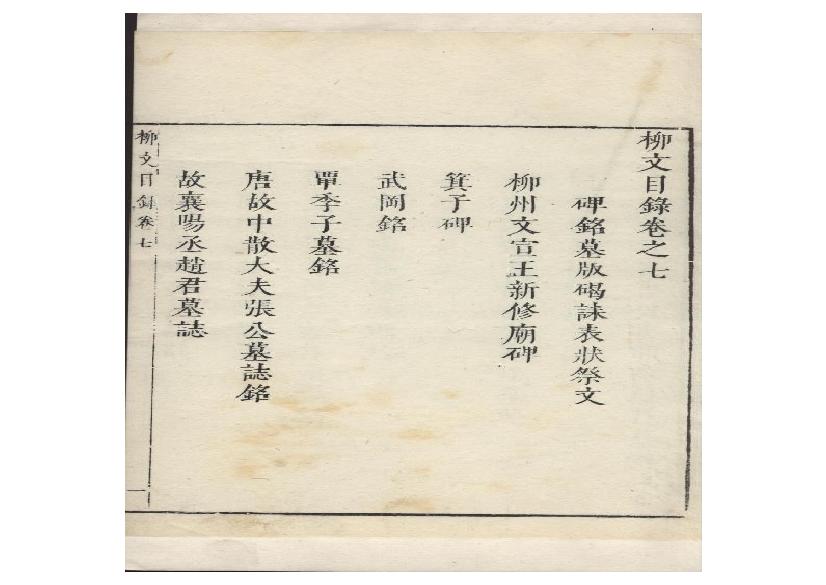 柳文目錄卷之七
碑銘墓版碣誄表狀祭文
柳州文宣王新修廟碑
箕子碑
武岡銘
覃季子墓銘
唐故中散大夫張公墓誌銘
故襄陽丞趙君墓誌
柳文目錄卷七
一